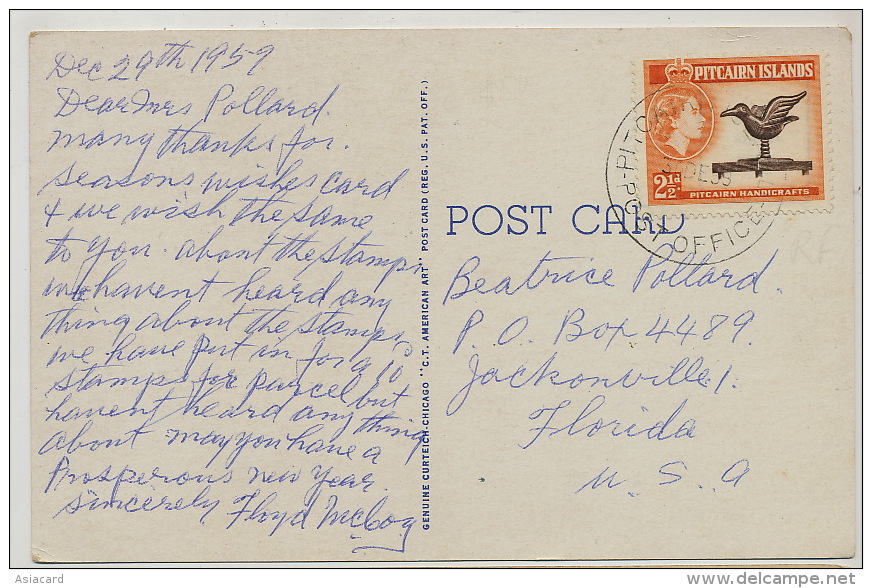 Dec 29th 1959
Dear Mrs Pollard.
many thanks for.
seasons wishes card
& we wish the same
to you. about the stamps
we havent heard any
thing about the stamps
we have put in for a 10
stamps for purcel but
havent heard any thing
about may you have a
Prosperous new year.
Sincerely Floyd McCoy
GENUINE CURTEICH-CHICAGO "C.T. AMERICAN ART" POST CARD (REG. U.S. PAT. OFF.)
PITCAIRN ISLANDS
2½d
PITCAIRN HANDICRAFTS
POST OFFICE
POST CARD
Beatrice Pollard.
P.O. Box 4489.
Jacksonville 1.
Florida
U.S.A
Asiacard
www.delcampe.net